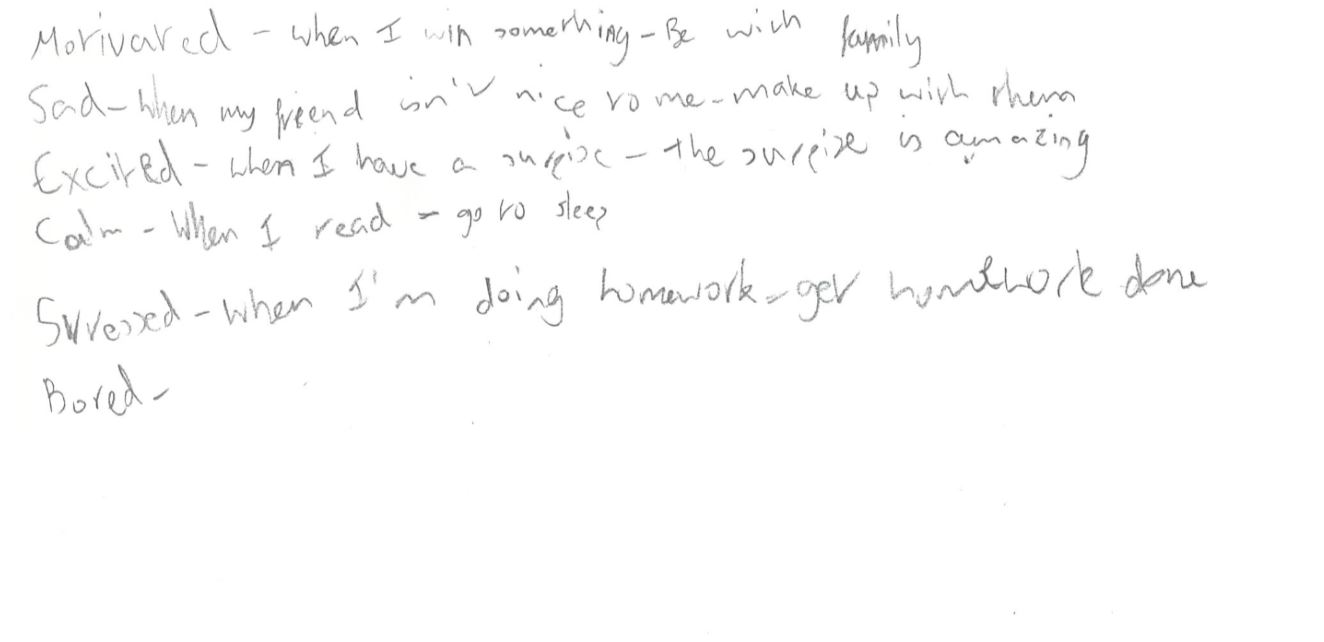 Motivated - when I win something - Be with family
Sad - when my freend isn't nice to me - make up with them
Excited - when I have a surpize - the surpize is amazing
Calm - When I read - go to sleep
Stressed - when I'm doing homework - get homework done
Bored -